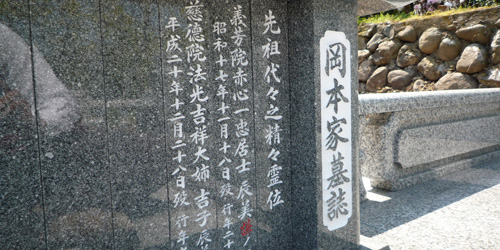 岡本家墓誌
先祖代々之精々霊位
義芳院赤心一忠居士 辰美
昭和十七年十一月十八日歿 行年二十
慈徳院法光吉祥大姉 吉子
平成二十年十二月二十八日歿 行年